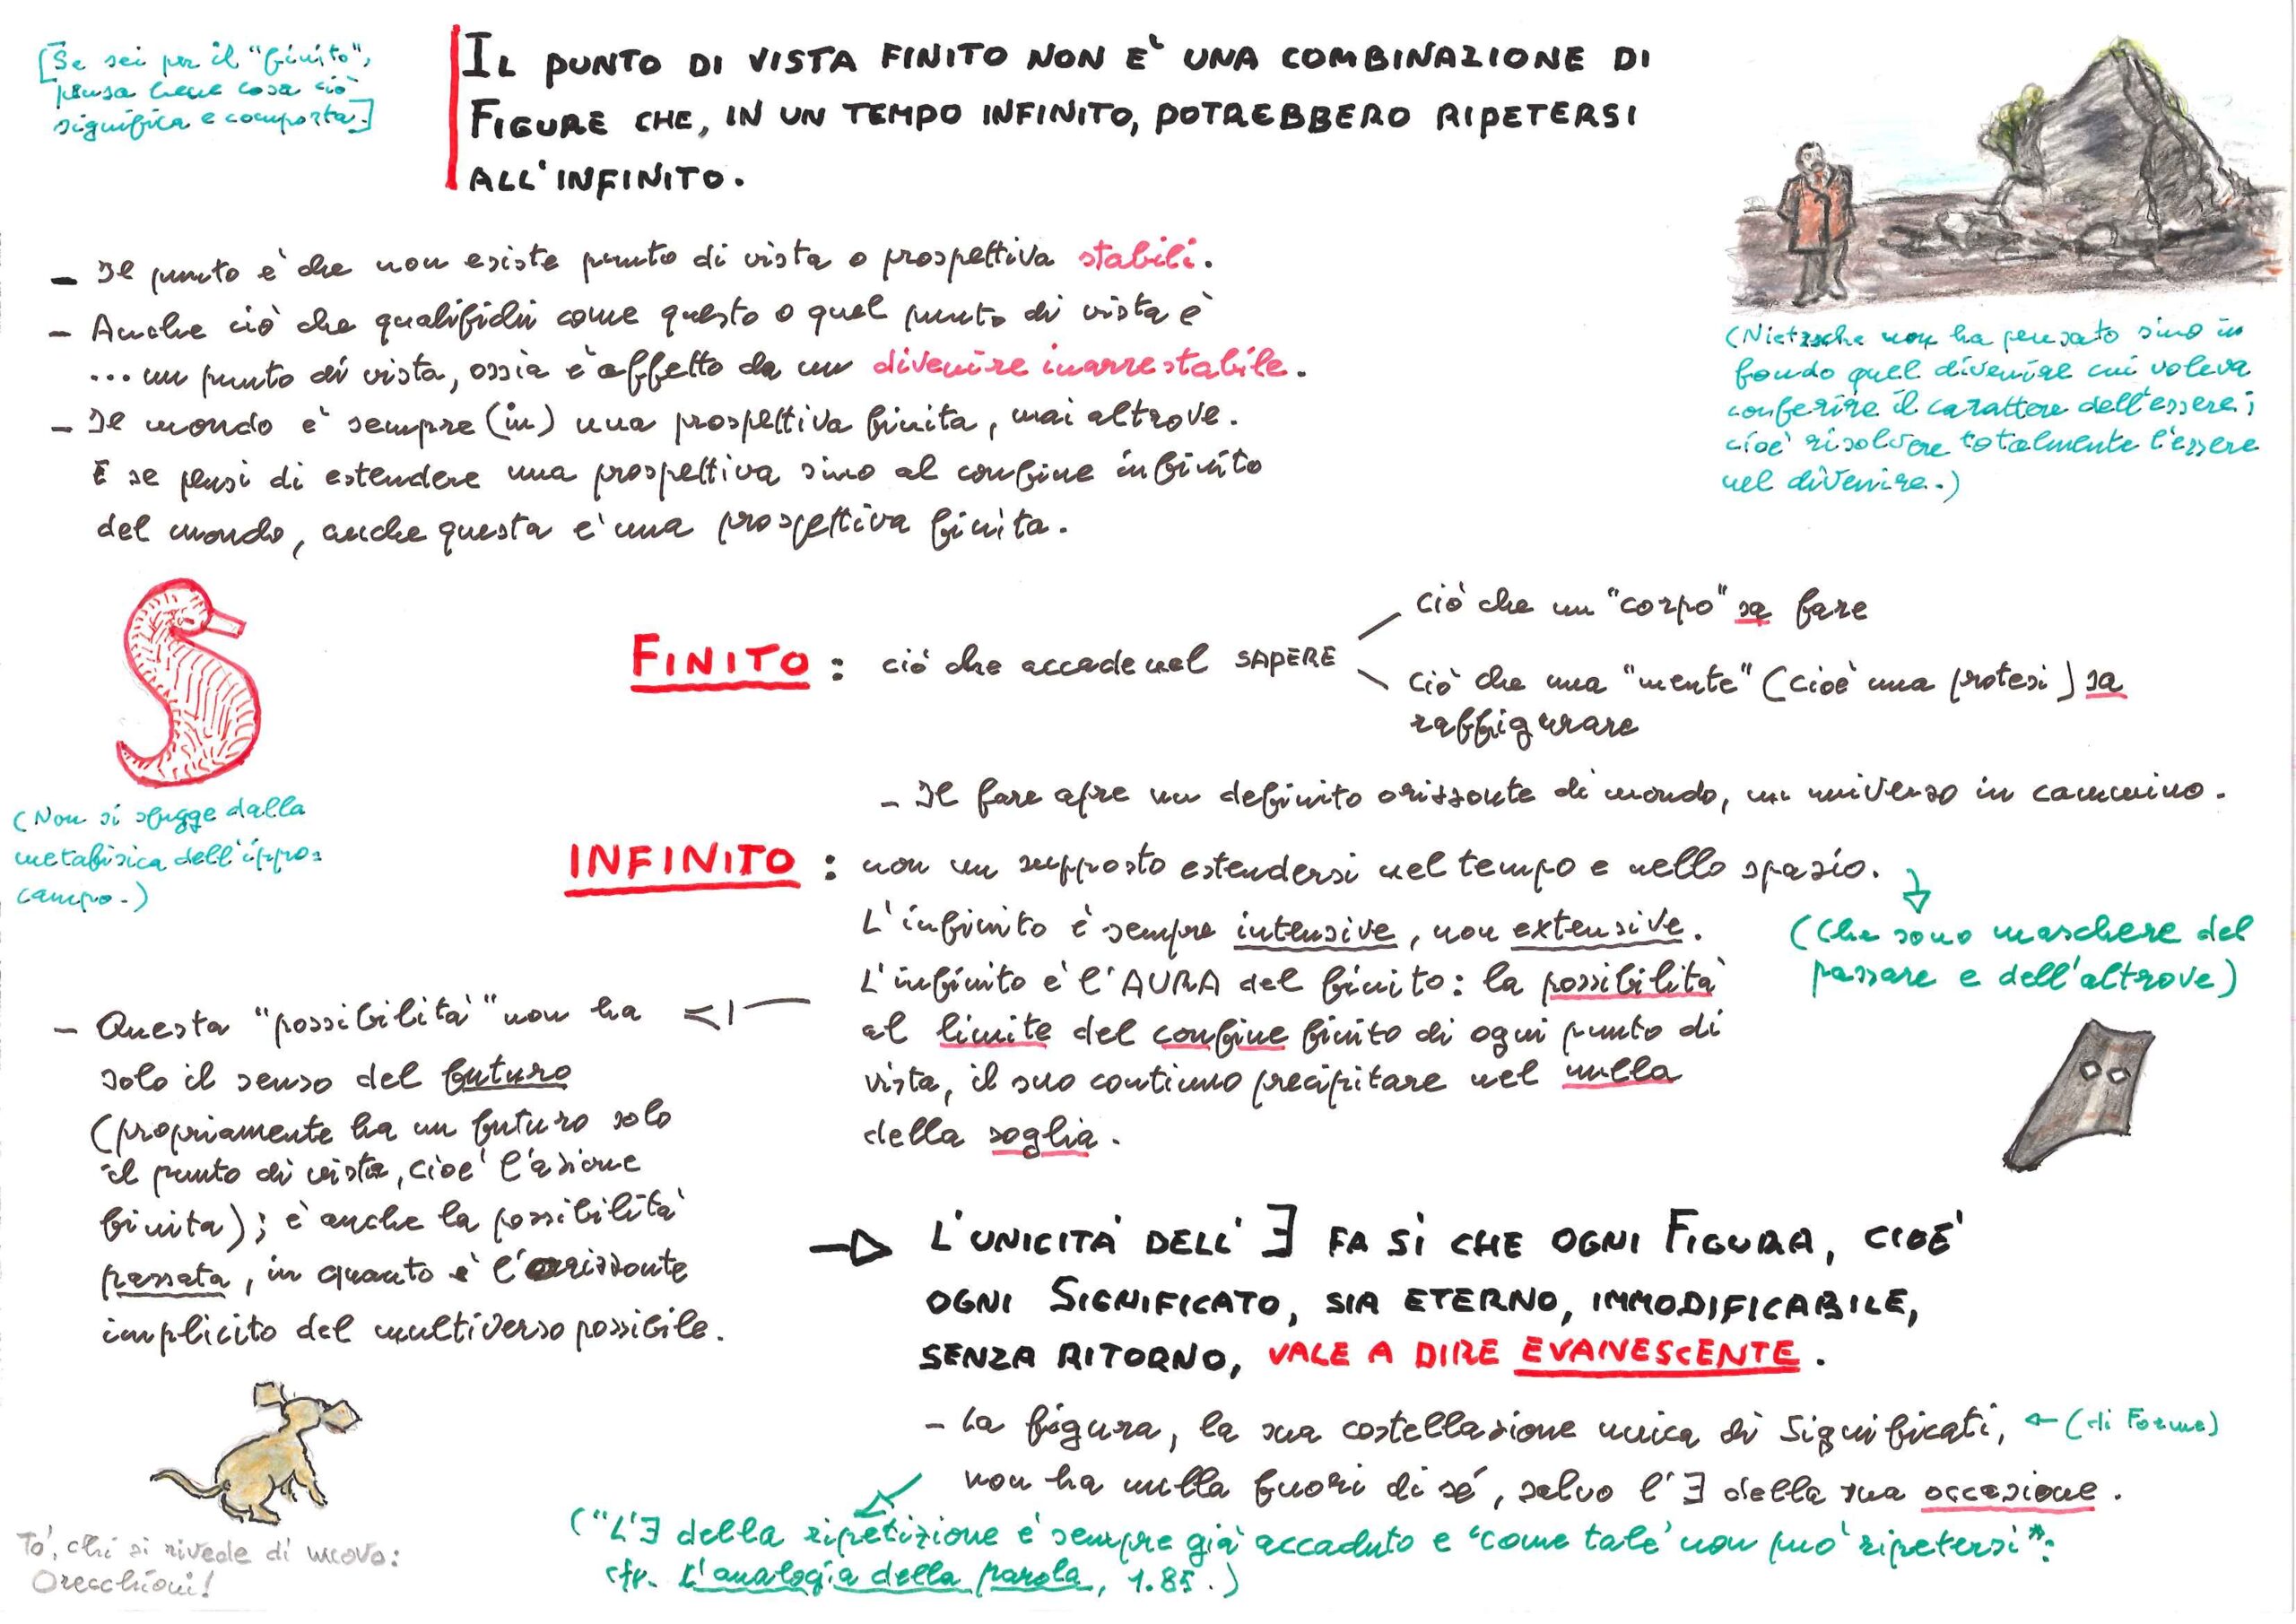 [Se sei per il "finito",
pensa bene cosa ciò
significa e comporta.]
IL PUNTO DI VISTA FINITO NON E' UNA COMBINAZIONE DI
FIGURE CHE, IN UN TEMPO INFINITO, POTREBBERO RIPETERSI
ALL'INFINITO.
- Il punto è che non esiste punto di vista o prospettiva stabili.
- Anche ciò che qualifichi come questo o quel punto di vista è
... un punto di vista, ossia è affetto da un divenire inarrestabile.
- Il mondo è sempre (in) una prospettiva finita, mai altrove.
E se pensi di estendere una prospettiva sino al confine infinito
del mondo, anche questa è una prospettiva finita.
(Nietzsche non ha pensato sino in
fondo quel divenire cui voleva
conferire il carattere dell'essere;
cioè risolvere totalmente l'essere
nel divenire.)
FINITO: ciò che accade nel SAPERE
ciò che un "corpo" sa fare
ciò che una "mente" (cioè una protesi) sa
raffigurare
- Il fare apre un definito orizzonte di mondo, un universo in cammino.
(Non si sfugge dalla
metafisica dell'ippo=
campo.)
INFINITO: non un supposto estendersi nel tempo e nello spazio.
(che sono maschere del
passare e dell'altrove)
L'infinito è sempre intensive, non extensive.
L'infinito è l'AURA del finito: la possibilità
al limite del confine finito di ogni punto di
vista, il suo continuo precipitare nel nulla
della soglia.
- Questa "possibilità" non ha
solo il senso del futuro
(propriamente ha un futuro solo
il punto di vista, cioè l'azione
finita); è anche la possibilità
passata, in quanto è l'orizzonte
implicito del multiverso possibile.
L'UNICITÀ DELL'∃ FA SÌ CHE OGNI FIGURA, CIOE'
OGNI SIGNIFICATO, SIA ETERNO, IMMODIFICABILE,
SENZA RITORNO, VALE A DIRE EVANESCENTE.
- La figura, la sua costellazione unica di Significati, ← (di Forme)
non ha nulla fuori di sé, salvo l'∃ della sua occasione.
("L'∃ della ripetizione è sempre già accaduto e 'come tale' non può ripetersi":
cfr. L'analogia della parola, 1.85.)
To', chi si rivede di nuovo:
Orecchioni!